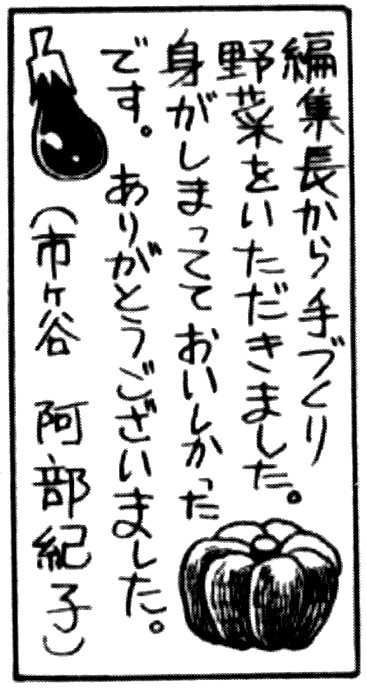 編集長から手づくり
野菜をいただきました。
身がしまってておいしかった
です。ありがとうございました。
（市ヶ谷　阿部紀子）